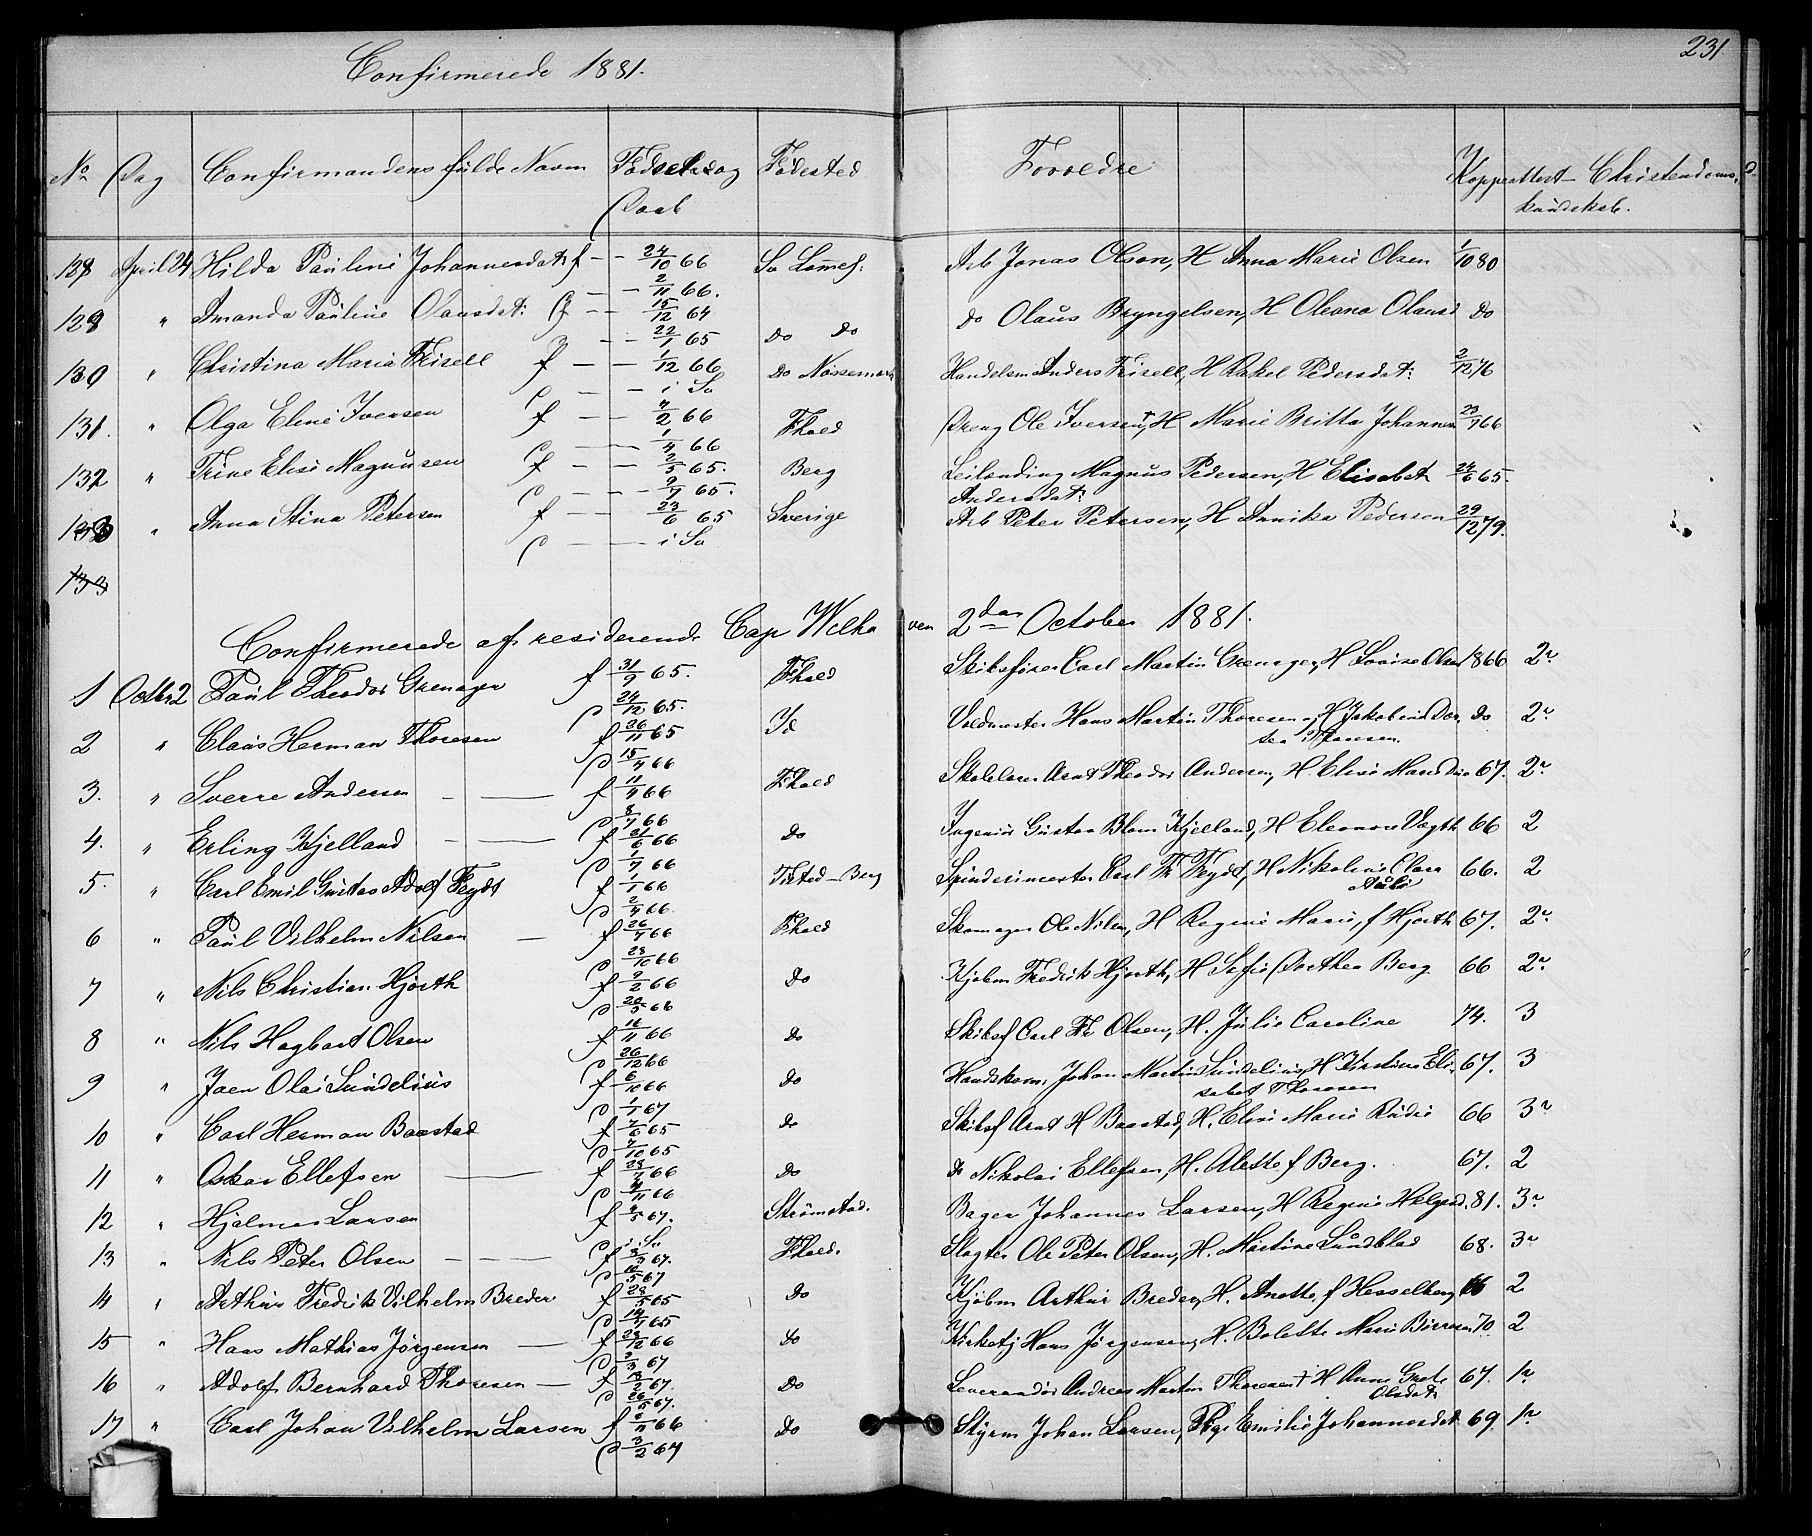 Confirmerede 1881.
231
No Dag Confirmandens fulde Navn Fødselsdag Daab Fødested Forældre Koppeattest Christendoms kundskab.
128 April 24 Hilda Pauline Johannesdat. f 24/10 66 D 2/11 66. Sv Arb Jonas Olson, H Anna Marie Olsen 1/10 80
129 " Amanda Pauline Olausdat: f 15/12 64 D 22/1 65 do do do Olaus Bryngelsen, H Oleana Olausd do
130 " Christina Maria Frisell f 1/12 66 D i Sv do Nössemark Handelsm Anders Frisell, H Rakel Pedersdat: 2/12 76
131. " Olga Eline Iversen f 4/2 66 D 1/4 66 Fhald Dreng Ole Iversen, H Marie Britta Johannes 23/7 66
132 " Trine Elise Magnusen f 2/5 65. D 9/7 65. Berg Leilending Magnus Pedersen, H Elisabet Andersdat: 24/6 65.
133 " Anna Stina Petersen f 23/6 65 D i Sv Sverige Arb Peter Petersen, H Annika Pedersen 29/12 79.
133
Confirmerede af residerende Cap Wilhaven 2den October 1881.
1 Octbr 2 Paul Theodor Grenager f 31/9 65. D 24/12 65. Fhald Skibsfører Carl Martin Grenager, H Lovise Olsen 1866 2r
2 " Claus Herman Thoresen f 26/11 65 D 15/4 66 Id Voldmester Hans Martin Thoresen, H Jakobine Dorthea Thoresen. do 2r
3. " Sverre Andersen f 11/4 66 D 8/7 66 Fhald Skolelærer Arnt Theodor Andersen, H Elise Marie 67. 2r
4. " Erling Kjelland f 21/6 66 D 1/7 66 do Ingeniør Gustav Blom Kjelland, H Eleonore Vogth 66 2
5. " Carl Emil Gustav Adolf Feydt f 1/1 66 D 2/4 66. Tisted-Berg Spinderimester Carl Th Feydt, H Nikoline Clara 66. 2
6 " Paul Vilhelm Nilsen f 26/7 66 D 28/10 66 Fhald Skomager Ole Nilsen, H Regine Marie, f Hjorth 67. 2r
7 " Nils Christian Hjorth f 9/2 66 D 20/5 66 do Kjøbm Fredrik Hjorth, H Sofie Dorthea Berg 66 2r
8 " Nils Hagbart Olsen f 16/11 66 D 26/12 66 do Skibsf Carl Fr Olsen, H. Julie Caroline 74. 3
9 " Jaen Olai Sundelius f 6/10 66 D 1/1 67 do Handskem. Johan Martin Sundelius, H Kirstine Elisabet Thoresen 67. 3
10 " Carl Herman Baastad f 7/6 65 D 7/10 65 do Skibsf Arnt H Baastad, H. Elise Marie Rudie 66 3r
11 " Oskar Ellefsen f 28/7 66 D 4/11 66 do do Nikolai Ellefsen, H. Alette f Berg. 67. 2
12 " Hjalmar Larsen f 2/5 67. D i Sv Strømstad. Bager Johannes Larsen, H Regine Helgesd. 81. 3r
13 " Nils Peter Olsen f 3/3 67. D 10/5 67 Fhald. Slagter Ole Peter Olsen, H. Martine Sundblad 68. 3r
14 " Arthur Fredrik Vilhelm Breder f 28/5 65 D 14/7 65 do Kjøbm Arthur Breder, H. Anette, f Hesselberg 66 2
15 " Hans Mathias Jørgensen f 28/12 66 D 3/3 67 do Kirketj Hans Jørgensen, H. Bolette Marie Børresen 70 2
16 " Adolf Bernhard Thoresen f 13/2 67. D 26/5 67. do Leverandør Andreas Martin Thoresen + H Anne Grete Olsdat. 67. 1r
17 " Carl Johan Vilhelm Larsen f 5/11 66 D 3/2 67 do Styrm Johan Larsen, Pige Emilie Johannesdat 69. 1r